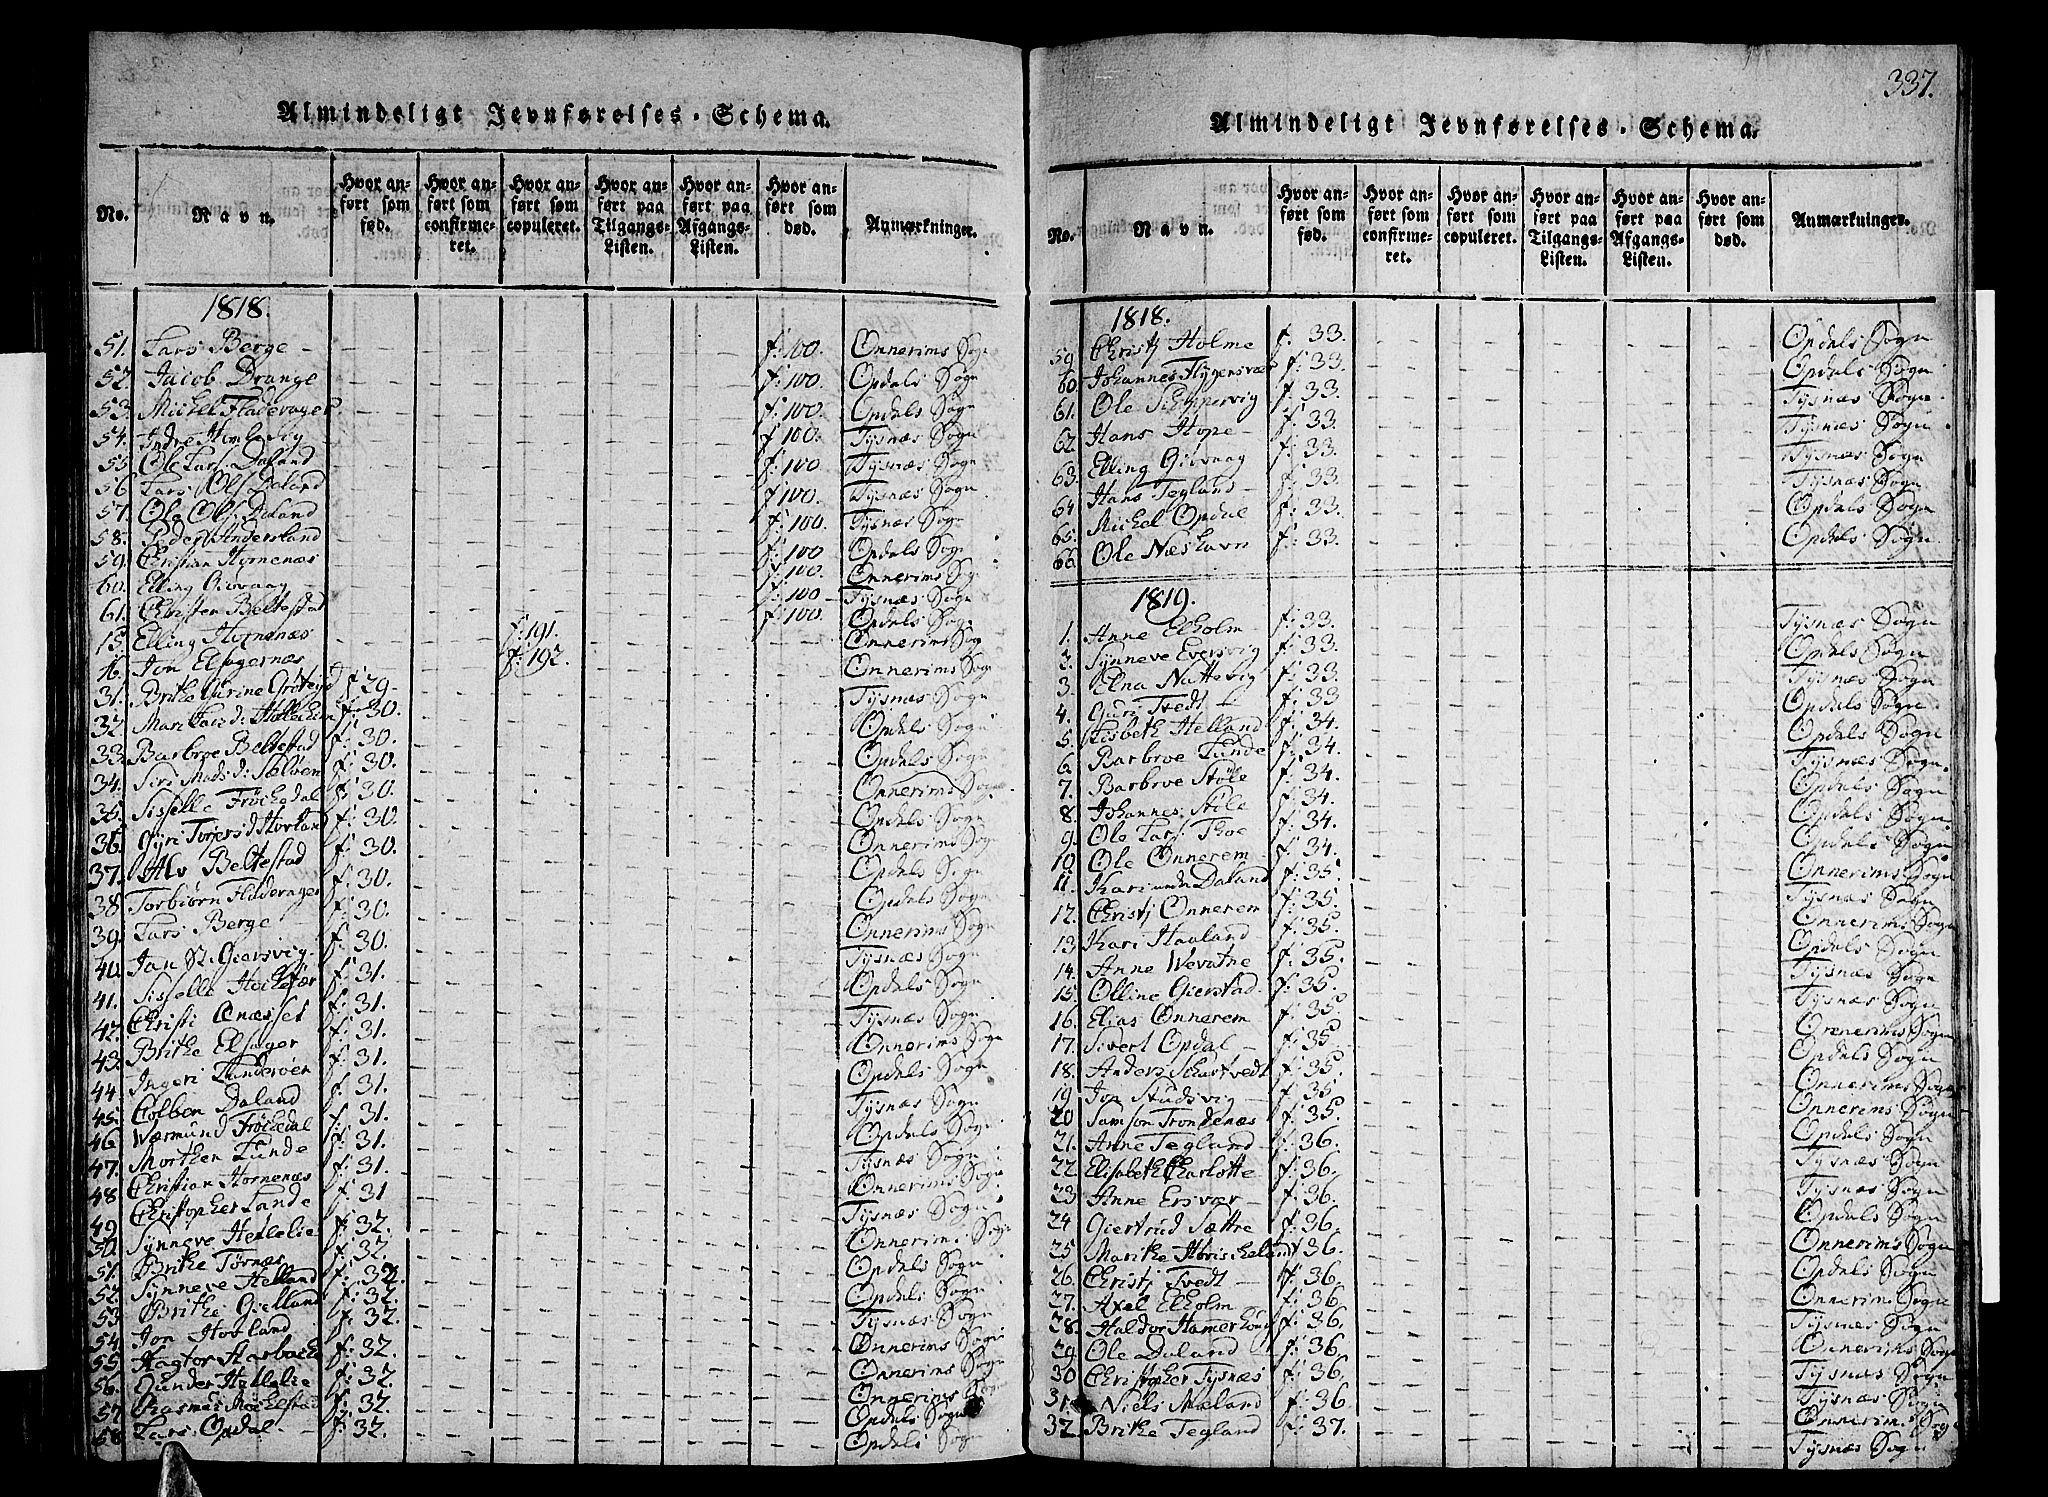 Almindeligt Jevnførelses-Schema.
No. Navn. Hvor anført som fød. Hvor anført som confirmeret. Hvor anført som copuleret. Hvor anført paa Tilgangs-Listen. Hvor anført paa Afgangs-Listen. Hvor anført som død. Anmærkninger.
1818.
51. Lars Berge f: 100. Onnerims Sogn
52. Jacob Drange f: 100. Opdals Sogn
53. Michel Fladerager f: 100. Opdals Sogn
54. Indre Himle Sig f: 100. Tysnæs Sogn
55. Ole Lars: Daland f: 100. Tysnæs Sogn
56 Lars Ols: Daland f: 100. Tysnæs Sogn
57. Ole Ols: Daland f: 100. Tysnæs Sogn
58. Peder Anderland f: 100 Opdals Sogn
59. Christian Hornenæs f: 100. Onnerims Sog
60. Elling Giovaag f: 100 Tysnæs Sogn
61. Christen Beltestad f: 100. Opdals Sogn
15. Elling Hornenæs f: 191. Onnerims Sog
16. Jon Elsagernæs f: 192. Onnerims Sogn
31. Brithe Gurine f: 29 Tysnæs Sogn
32 Mari f: 30. Opdals Sogn
33. Barbroe Beltestad f: 30. Opdals Sogn
34. Siri Mads: d: f: 30. Onnerims Sogn
35. Sisselle Fröchedal f: 30. Opdals Sogn
36. Gyri Torjers: d: Hovland f: 30. Onnerims Sogn
37. Alv Beltestad f: 30. Opdals Sogn
38 Torbiørn Fladerager f: 30. Opdals Sogn
39. Lars Berge f: 30. Onnerims Sogn
40. Jan St: Giersvig f: 30. Tysnæs Sogn
41. Sisselle f: 31. Opdals Sogn
42. Christi f: 31. Tysnæs Sogn
43. Brithe Elsager f: 31. Onnerims Sogn
44 Ingeri Lunderøen f: 31. Opdals Sogn
45. Colben Daland f: 31. Tysnæs Sogn
46 Værmund Fröchedal f: 31. Opdals Sogn
47. Morthen Lunde f: 31. Tysnæs Sogn
48 Christian Hornenæs f: 31. Onnerims Sogn
49 Christopher Lande f: 31 Tysnæs Sogn
50. Synneve Hellelie f: 32. Onnerims Sogn
51. Brithe Tørnæs f: 32. Opdals Sogn
52 Synneve Helland f: 32. Opdals Sogn
53 Brithe Gielland f: 32. Tysnæs Sogn
54. Jon Hovland f: 32. Onnerims Sogn
55 Hagtor f: 32. Onnerims Sogn
56. Gunder Hellelie f: 32. Onnerims Sogn
57 Rasmus f: 32. Opdals Sogn
58 Lars Opdal f: 32. Opdals Sogn
337.
Almindeligt Jevnførelses-Schema.
No. Navn. Hvor anført som fød. Hvor anført som confirmeret. Hvor anført som copuleret. Hvor anført paa Tilgangs-Listen. Hvor anført paa Afgangs-Listen. Hvor anført som død. Anmærkninger.
1818.
59 Christj Holme f: 33. Opdals Sogn
60. Johannes Flygensvær f: 33. Opdals Sogn
61. Ole Schippervig f: 33. Tysnæs Sogn
62. Hans Hope f: 33. Tysnæs Sogn
63. Elling Giovaag f: 33. Tysnæs Sogn
64 Hans Tegland f: 33. Tysnæs Sogn
65. Michel Opdal f: 33. Opdals Sogn
66 Ole Næshavn f: 33. Opdals Sogn
1819.
1. Anne Elholm f: 33. Tysnæs Sogn
3. Synneve Eversvig f: 33. Opdals Sogn
3. Elna Nattevig f: 33. Tysnæs Sogn
4. Guri Tvedt f: 33 Opdals Sogn
5. Lisbeth Helland f: 34. Opdals Sogn
6. Barbroe Lunde f: 34. Tysnæs Sogn
7. Barbroe Støle f: 34. Opdals Sogn
8. Johannes Stile f: 34. Opdals Sogn
9. Ole Lars: Thoe f: 34. Opdals Sogn
10. Ole Onnerem f: 34. Onnerims Sogn
11. Kari Daland f: 35. Tysnæs Sogn
12. Christj Onnerem f: 35. Onnerims Sogn
13. Kari Haaland f: 35. Opdals Sogn
14. Anne Wevatne f: 35. Tysnæs Sogn
15. Olline Gierstad f: 35. Tysnæs Sogn
16. Elias Onnerem f: 35. Onnerims Sogn
17. Sivert Opdal f: 35 Opdals Sogn
18. Anders Schartvedt f: 35. Onnerims Sogn
19 Jon Studsvig f: 35 Onnerims Sogn
20 Samson Trondenæs f: 35. Opdals Sogn
21. Anne Tegland f: 36. Tysnæs Sogn
22. Elisabeth Charlotte f: 36. Tysnæs Sogn
23 Anne Ersvær f: 36. Opdals Sogn
24 Giertrud Sættre f: 36. Onnerims Sogn
25 Marithe f: 36. Opdals Sogn
26. Christj Tvedt f: 36. Onnerims Sogn
27. Axel Elholm f: 36 Tysnæs Sogn
28. Haldor f: 36. Onnerims Sogn
29. Ole Daland f: 36. Tysnæs Sogn
30 Christopher Tysnæs f: 36. Tysnæs Sogn
31. Niels Maland f: 36 Onnerims Sogn
32. Brithe Tegland f: 37. Tysnæs Sogn